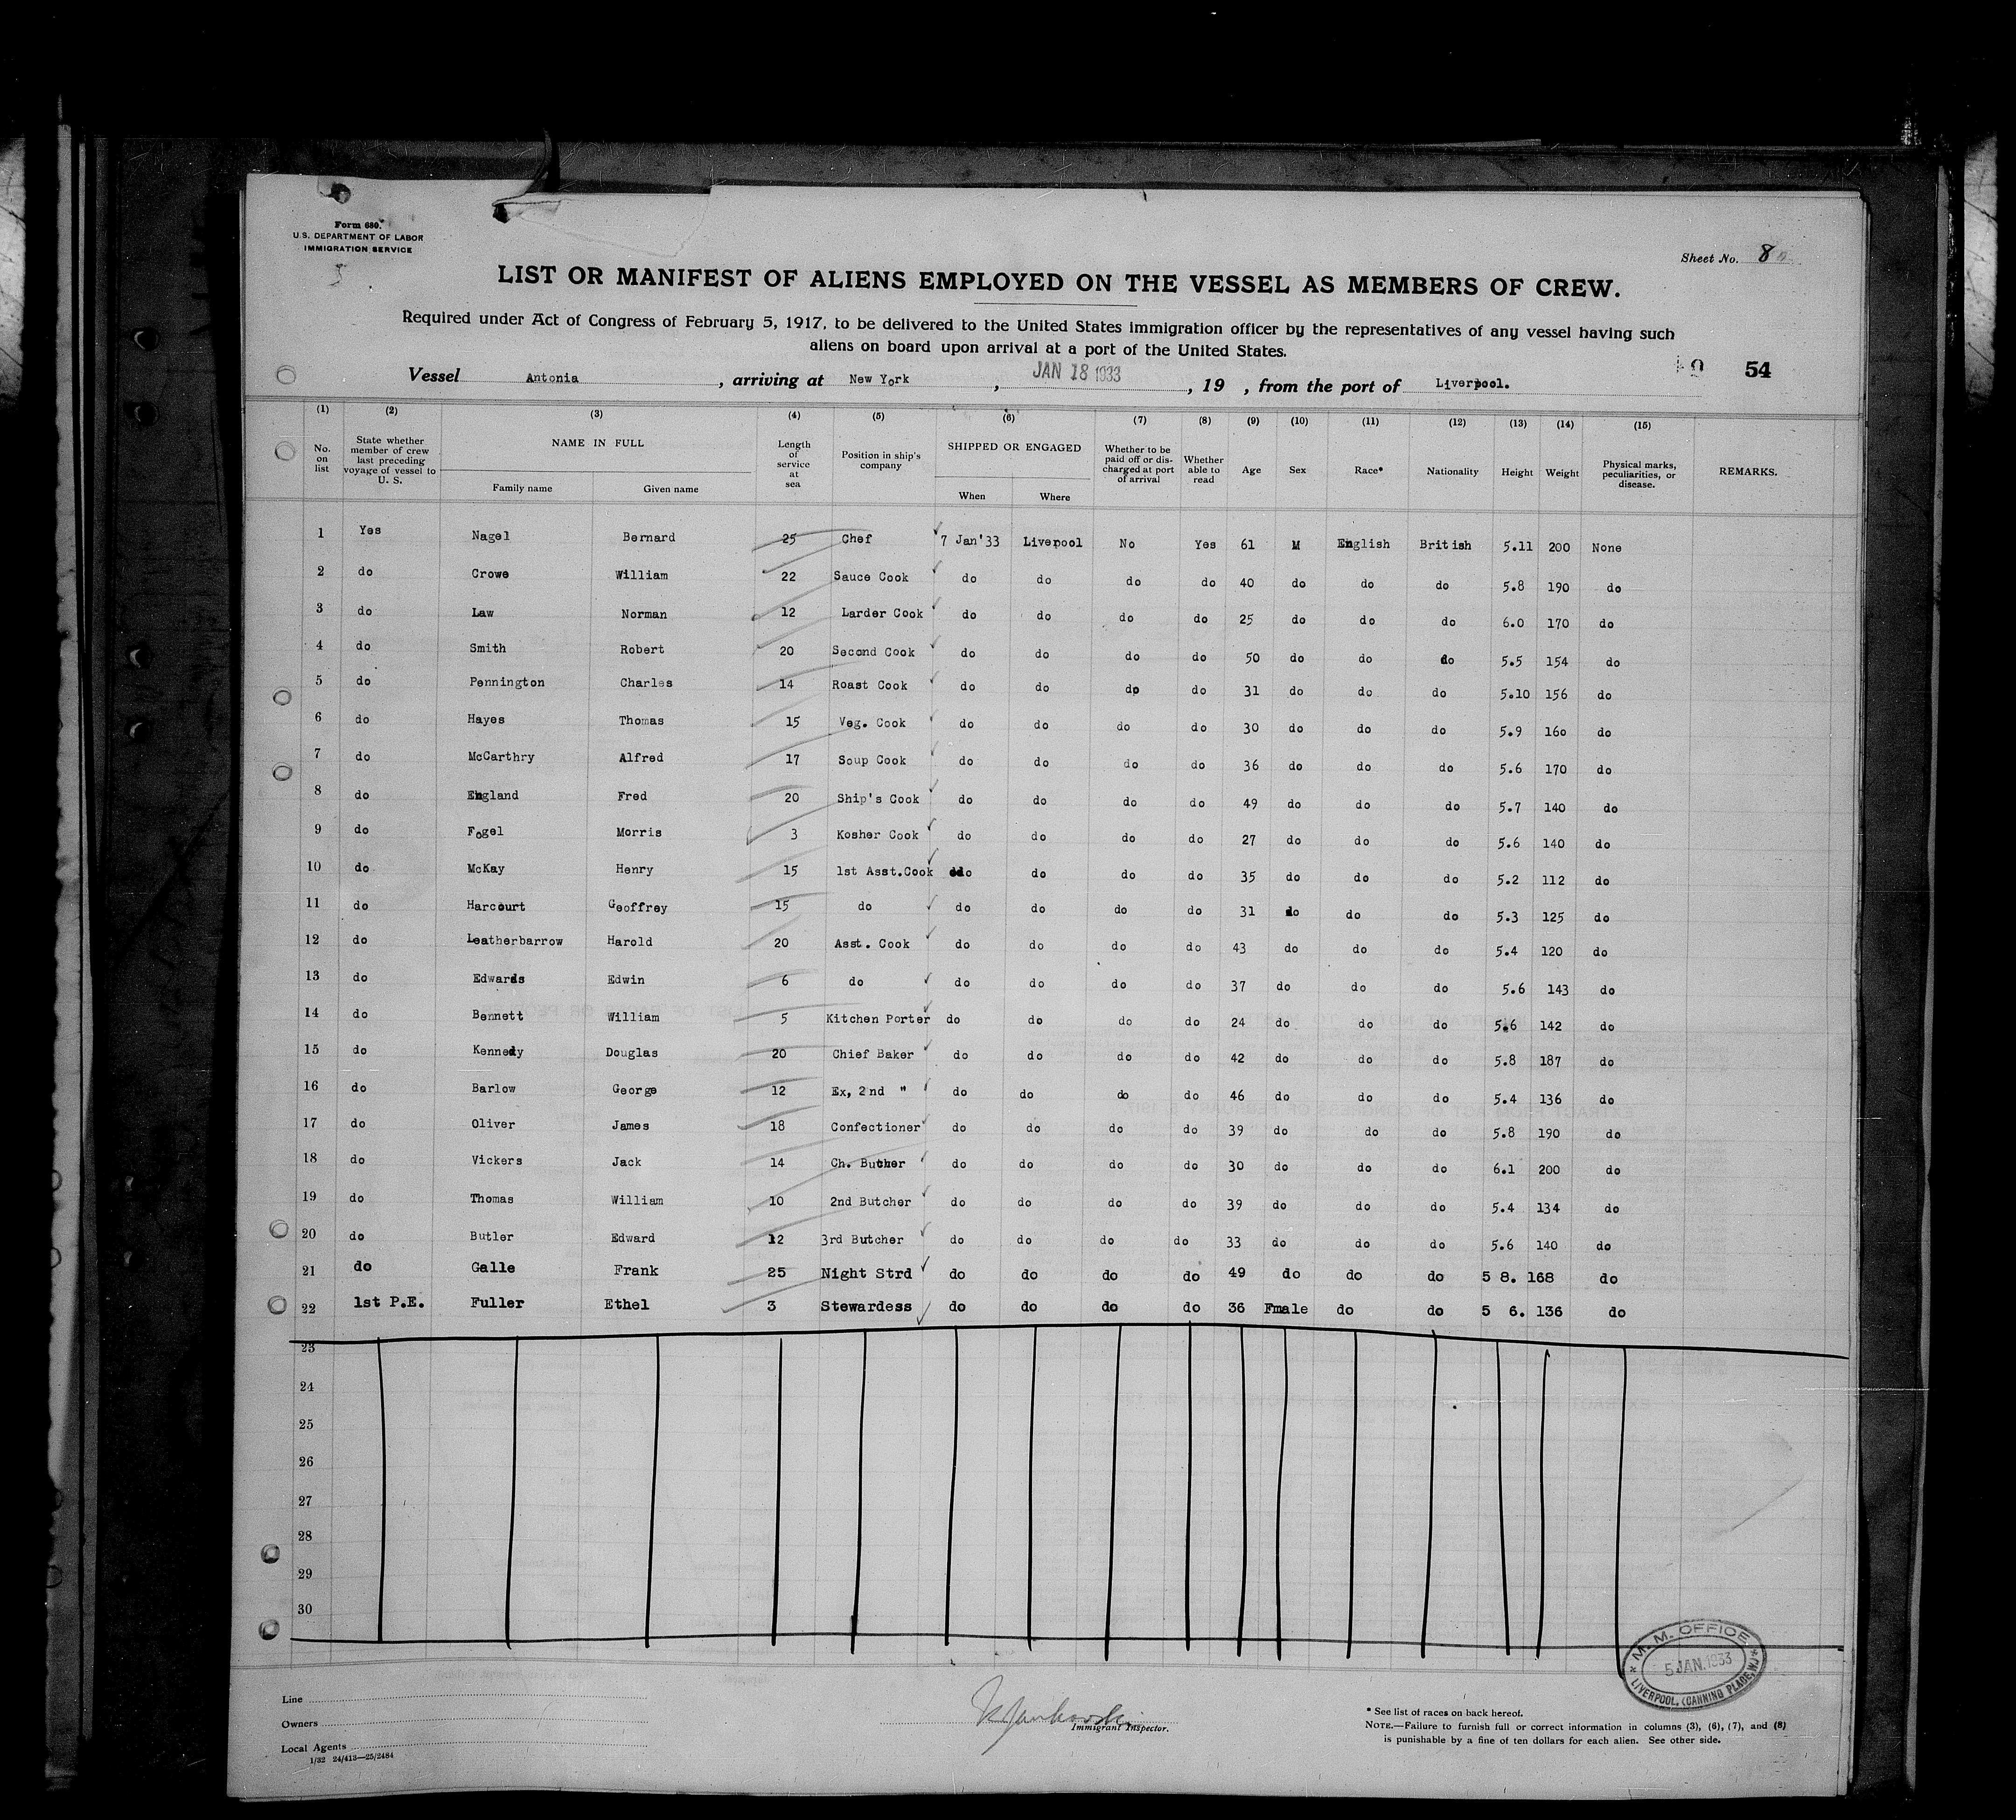 Form 680.
U.S. DEPARTMENT OF LABOR
IMMIGRATION SERVICE
Sheet No. 8
LIST OR MANIFEST OF ALIENS EMPLOYED ON THE VESSEL AS MEMBERS OF CREW.
Required under Act of Congress of February 5, 1917, to be delivered to the United States immigration officer by the representatives of any vessel having such
aliens on board upon arrival at a port of the United States.
54
Vessel Antonia, arriving at New York, JAN 18 1933, 19 , from the port of Liverpool.
(1) (2) (3) (4) (5) (6) (7) (8) (9) (10) (11) (12) (13) (14) (15)
No. on list State whether member of crew last preceding voyage of vessel to U. S. NAME IN FULL Family name Given name Length of service at sea Position in ship's company SHIPPED OR ENGAGED When Where Whether to be paid off or discharged at port of arrival Whether able to read Age Sex Race* Nationality Height Weight Physical marks, peculiarities, or disease. REMARKS.
1 Yes Nagel Bernard 25 Chef 7 Jan'33 Liverpool No Yes 61 M English British 5.11 200 None
2 do Crowe William 22 Sauce Cook do do do do 40 do do do 5.8 190 do
3 do Law Norman 12 Larder Cook do do do do 25 do do do 6.0 170 do
4 do Smith Robert 20 Second Cook do do do do 50 do do do 5.5 154 do
5 do Pennington Charles 14 Roast Cook do do do do 31 do do do 5.10 156 do
6 do Hayes Thomas 15 Veg. Cook do do do do 30 do do do 5.9 160 do
7 do McCarthry Alfred 17 Soup Cook do do do do 36 do do do 5.6 170 do
8 do England Fred 20 Ship's Cook do do do do 49 do do do 5.7 140 do
9 do Fogel Morris 3 Kosher Cook do do do do 27 do do do 5.6 140 do
10 do McKay Henry 15 1st Asst.Cook do do do do 35 do do do 5.2 112 do
11 do Harcourt Geoffrey 15 do do do do do 31 do do do 5.3 125 do
12 do Leatherbarrow Harold 20 Asst. Cook do do do do 43 do do do 5.4 120 do
13 do Edwards Edwin 6 do do do do do 37 do do do 5.6 143 do
14 do Bennett William 5 Kitchen Porter do do do do 24 do do do 5.6 142 do
15 do Kennedy Douglas 20 Chief Baker do do do do 42 do do do 5.8 187 do
16 do Barlow George 12 Ex, 2nd " do do do do 46 do do do 5.4 136 do
17 do Oliver James 18 Confectioner do do do do 39 do do do 5.8 190 do
18 do Vickers Jack 14 Ch. Butcher do do do do 30 do do do 6.1 200 do
19 do Thomas William 10 2nd Butcher do do do do 39 do do do 5.4 134 do
20 do Butler Edward 12 3rd Butcher do do do do 33 do do do 5.6 140 do
21 do Galle Frank 25 Night Strd do do do do 49 do do do 5 8. 168 do
22 1st P.E. Fuller Ethel 3 Stewardess do do do do 36 Fmale do do 5 6. 136 do
23
24
25
26
27
28
29
30
M. M. OFFICE
5 JAN. 1933
LIVERPOOL, (CANNING PLACE, W.)
Line
Owners
Local Agents
1/32 24/413—25/2484
Immigrant Inspector.
* See list of races on back hereof.
NOTE.—Failure to furnish full or correct information in columns (3), (6), (7), and (8)
is punishable by a fine of ten dollars for each alien. See other side.